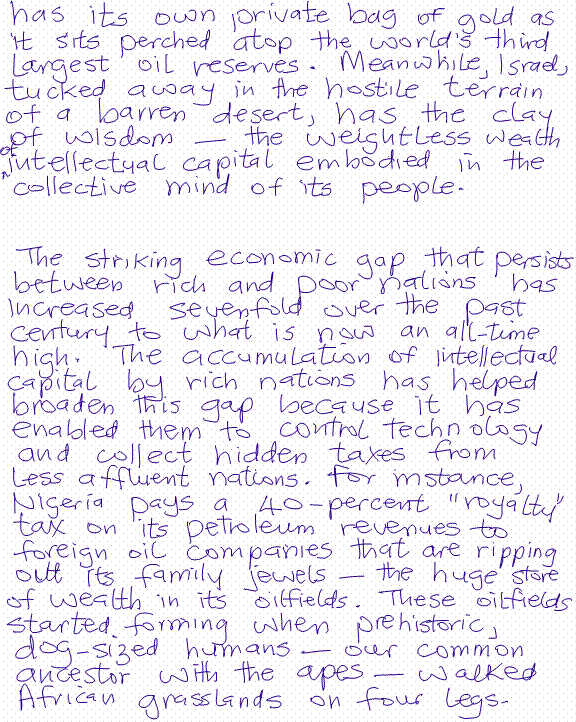 has its own private bag of gold as
it sits perched atop the world's third
largest oil reserves. Meanwhile, Israel,
tucked away in the hostile terrain
of a barren desert, has the clay
of wisdom — the weightless wealth
of intellectual capital embodied in the
collective mind of its people.
The striking economic gap that persists
between rich and poor nations has
increased sevenfold over the past
century to what is now an all-time
high. The accumulation of intellectual
capital by rich nations has helped
broaden this gap because it has
enabled them to control technology
and collect hidden taxes from
less affluent nations. For instance,
Nigeria pays a 40-percent "royalty"
tax on its petroleum revenues to
foreign oil companies that are ripping
out its family jewels — the huge store
of wealth in its oilfields. These oilfields
started forming when prehistoric,
dog-sized humans — our common
ancestor with the apes — walked
African grasslands on four legs.